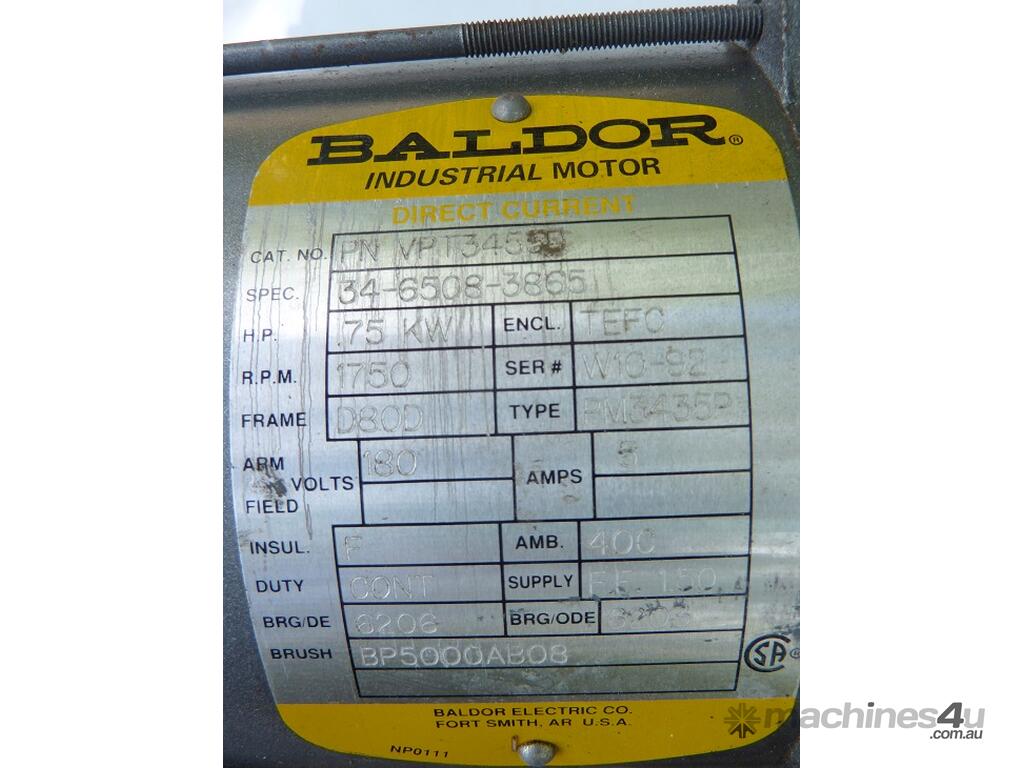 BALDOR®
INDUSTRIAL MOTOR
DIRECT CURRENT
CAT. NO. PN
SPEC. 34-6508-3865
H.P. .75 KW ENCL. TEFC
R.P.M. 1750 SER # W10-92
FRAME D80D TYPE PM3435P
ARM 180 5
VOLTS AMPS
FIELD
INSUL. F AMB. 40C
DUTY CONT SUPPLY F.F. 1.50
BRG/DE 6206 BRG/ODE
BRUSH BP5000AB08
SA ®
BALDOR ELECTRIC CO.
FORT SMITH, AR U.S.A.
NP0111
machines4u
.com.au